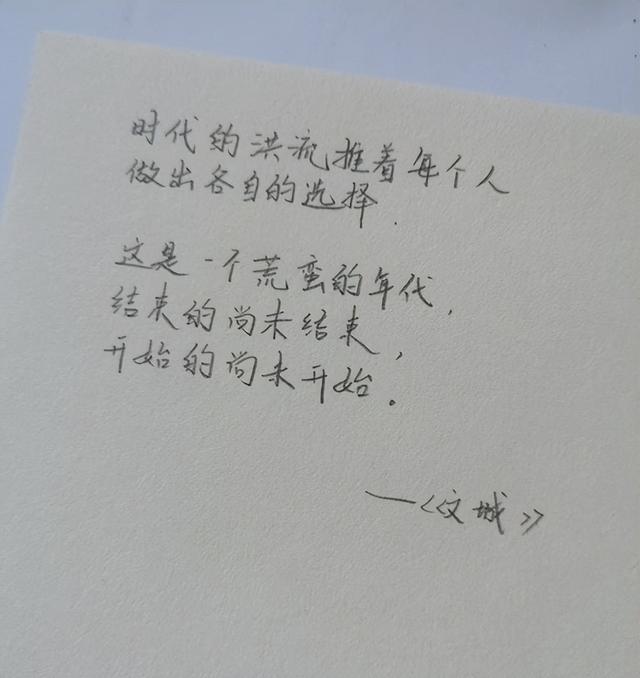 时代的洪流推着每个人
做出各自的选择.
这是一个荒蛮的年代,
结束的尚未结束,
开始的尚未开始。
——《文城》